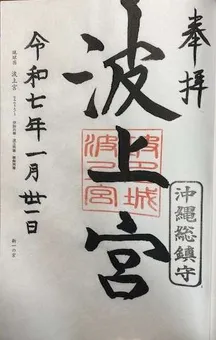 奉拝
沖縄総鎮守
波上宮
令和七年一月丗一日
波上宮